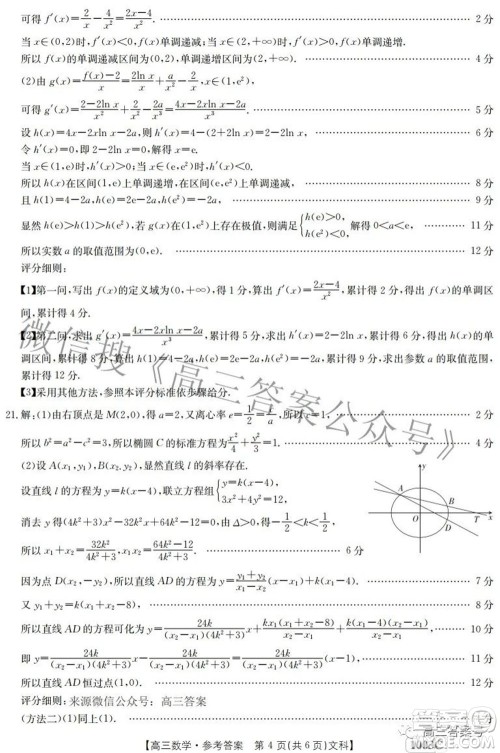 可得f′(x)=2/x-4/x²=(2x-4)/x². 2分
当x∈(0,2)时,f′(x)<0,f(x)单调递减;当x∈(2,+∞)时,f′(x)>0,f(x)单调递增.
所以f(x)的单调递减区间为(0,2),单调递增区间为(2,+∞). 4分
(2)由g(x)=(f(x)-2)/x=2ln x/x+a/x²-2/x,x∈(1,e²),
可得g′(x)=(2-2ln x)/x²+2/x²-2a/x³=(4x-2xln x-2a)/x³. 5分
设h(x)=4x-2xln x-2a,则h′(x)=4-(2+2ln x)=2-2ln x. 6分
令h′(x)=0,即2-2ln x=0,解得x=e.
当x∈(1,e)时,h′(x)>0;当x∈(e,e²)时,h′(x)<0.
所以h(x)在区间(1,e)上单调递增,在区间(e,e²)上单调递减, 8分
且h(1)=4-2a,h(e)=2e-2a,h(e²)=-2a, 9分
显然h(e)>h(1)>h(e²),若g(x)在(1,e²)上存在极值,则满足{h(e)>0, h(e²)<0, 解得0<a<e,
所以实数a的取值范围为(0,e). 12分
评分细则:
【1】第一问,写出f(x)的定义域为(0,+∞),得1分,算出f′(x)=(2x-4)/x²,累计得2分,得出f(x)的单调区
间,累计得4分.
【2】第二问,求出g′(x)=(4x-2xln x-2a)/x³,累计得5分,求出h′(x)=2-2ln x,累计得6分,得出h(x)的单
调区间,累计得8分,算出h(1)=4-2a,h(e)=2e-2a,h(e²)=-2a,累计得9分,求出参数a的取值范围,
累计得12分.
【3】采用其他方法,参照本评分标准依步骤给分.
21.解:(1)由右顶点是M(2,0),得a=2,又离心率e=1/2=c/a,所以c=1, 2分
所以b²=a²-c²=3,所以椭圆C的标准方程为x²/4+y²/3=1. 4分
(2)设A(x₁,y₁),B(x₂,y₂),显然直线l的斜率存在.
设直线l的方程为y=k(x-4),联立方程组{y=k(x-4), 3x²+4y²=12,
消去y得(4k²+3)x²-32k²x+64k²-12=0,由Δ>0,得-1/2<k<1/2,
所以x₁+x₂=32k²/(4k²+3),x₁x₂=(64k²-12)/(4k²+3). 6分
y
A
B
O
D
T
x
因为点D(x₂,-y₂),所以直线AD的方程为y=(y₁+y₂)/(x₁-x₂)(x-x₁)+y₁. 7分
又y₁+y₂=k(x₁+x₂-8), 8分
所以直线AD的方程可化为y=24k/((x₂-x₁)(4k²+3))x+kx₁(x₁+x₂-8)/(x₂-x₁)+k(x₁-4)(x₂-x₁)/(x₂-x₁), 10分
即y=24k/((x₂-x₁)(4k²+3))x-24k/((x₂-x₁)(4k²+3))=24k/((x₂-x₁)(4k²+3))(x-1), 11分
所以直线AD恒过点(1,0). 12分
评分细则: 来源微信公众号:高三答案
(方法二)(1)同上(1).
【高三数学·参考答案 第4页(共6页)文科】
微信搜《高三答案公众号》
高三答案号